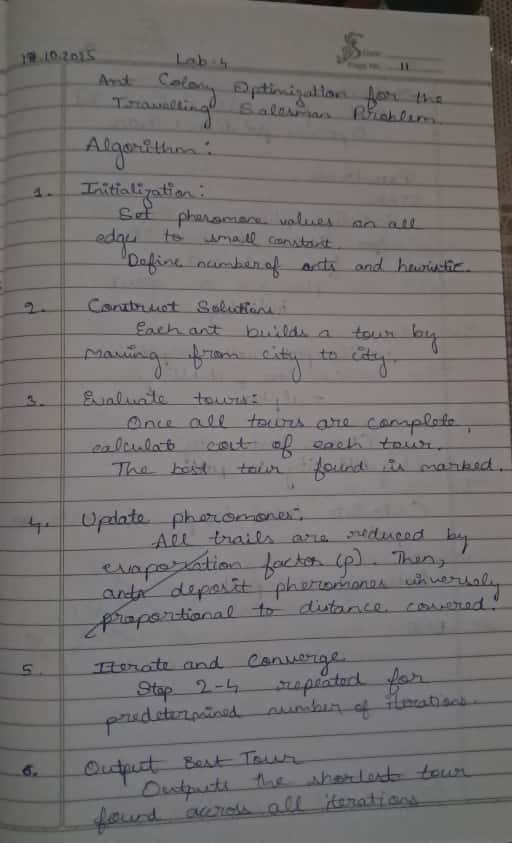 17.10.2025 Lab-4 11
Ant Colony Optimization for the
Travelling Salesman Problem.
Algorithm:
1. Initialization:
Set pheromone values on all
edge to small constant.
Define number of ants and heuristic.
2. Construct Solutions:
Each ant builds a tour by
moving from city to city.
3. Evaluate tours:
Once all tours are complete,
calculate cost of each tour.
The best tour found is marked.
4. Update pheromones:
All trails are reduced by
evaporation factor (ρ). Then,
ants deposit pheromones inversely
proportional to distance covered.
5. Iterate and Converge
Step 2-4 repeated for
predetermined number of iterations.
6. Output Best Tour
Outputs the shortest tour
found accross all iterations